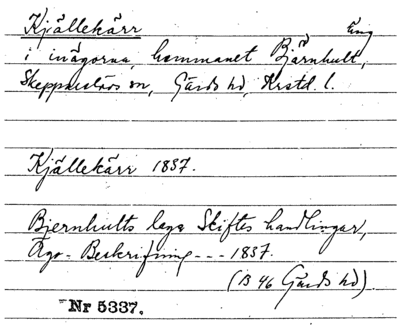 Kjällekärr Äng
i inägorna, hemmanet Bjärnhult,
Skepparslövs sn, Gärds hd, Krstd. l.
Kjällekärr 1837.
Bjernhults laga Skiftes handlingar,
Ego-Beskrifning --- 1837.
(B 46 Gärds hd).
Nr 5337.